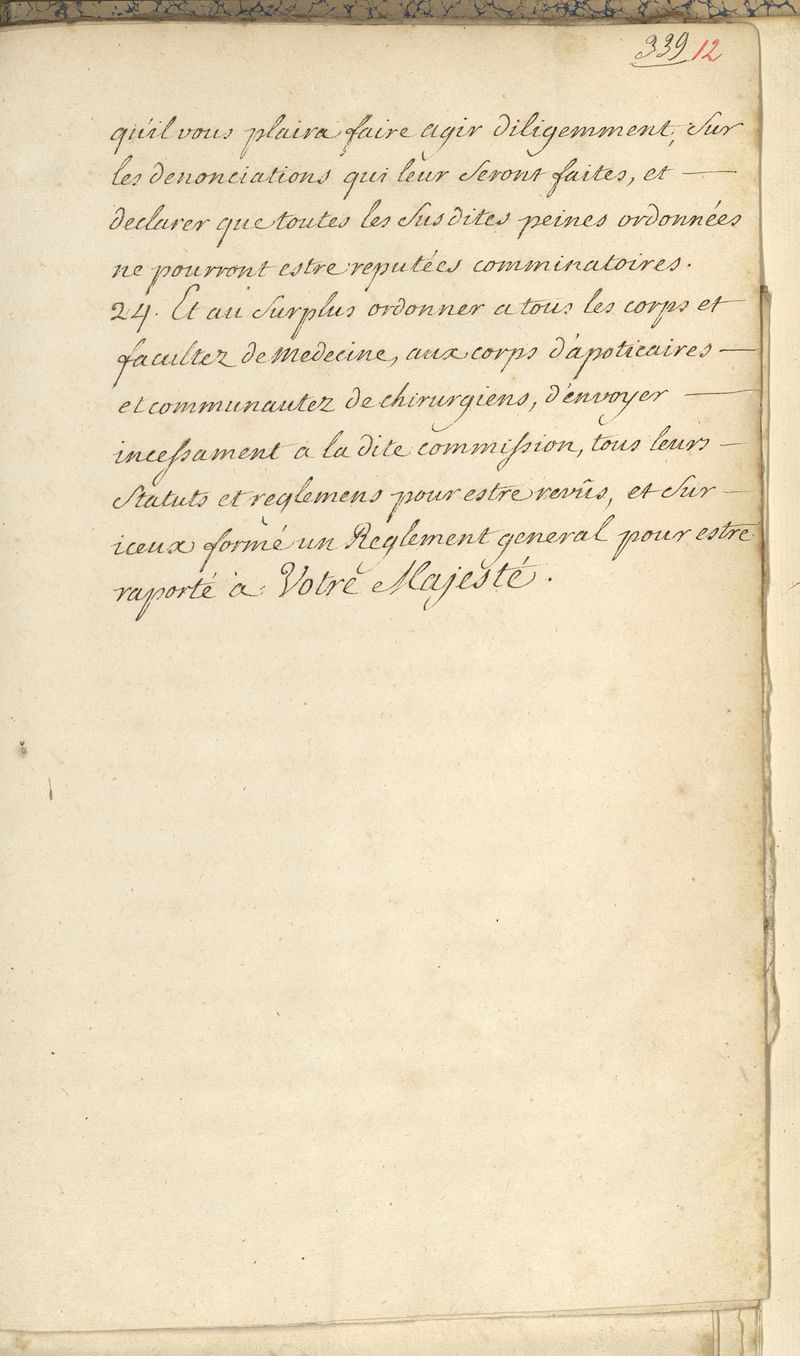 339 12
qu'il vous plaira faire agir diligemment, sur
les denonciations qui leur seront faites, et —
declarer que toutes les susdites peines ordonnées
ne pourront estre reputées comminatoires.
24. Et au surplus ordonner a tous les corps et
facultez de Medecine, aux corps d'apoticaires —
et communautez de chirurgiens, d'envoyer —
incessament a la dite commission, tous leurs —
statuts et reglemens pour estre revûs, et sur —
iceux formé un Reglement general pour estre
raporté à Votre Majesté.